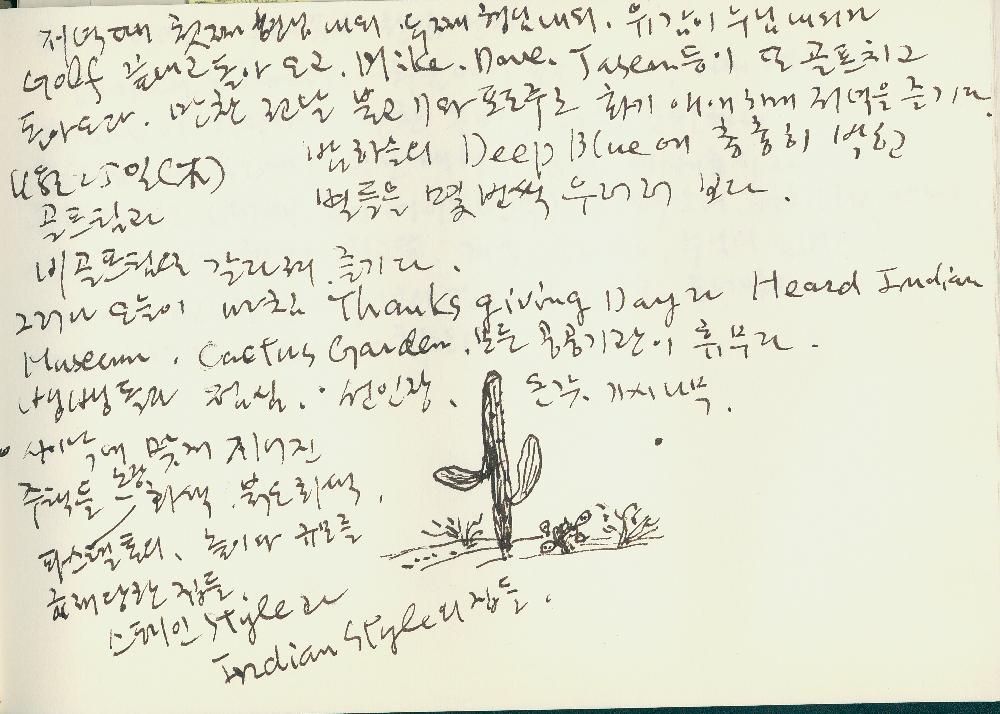 저녁때 첫째 형님 내외. 두째 형님 내외. 유감이 누님 내외가
Golf 끝내고 돌아오고. Mike. Dave. Jason 등이 또 골프치고
돌아오다. 만찬 불고기와 포도주로 화기애애하게 저녁을 즐기다.
밤하늘의 Deep Blue에 총총히 박힌
별들을 몇 번씩 우러러 보다.
11월 25일(木)
골프팀과
비골프팀으로 갈라져 즐기다.
그러나 오늘이 마침 Thanks giving Day라 Heard Indian
Museum. Cactus Garden. 모든 공공기관이 휴무라.
냉냉 점심. 선인장. 온갖 가시나무.
사이에 맞게 지어진
주택들 노랑 회색. 붉은 회색.
파스텔톤의. 높이나 규모를
집들.
스페인 Style과
Indian Style의 집들.